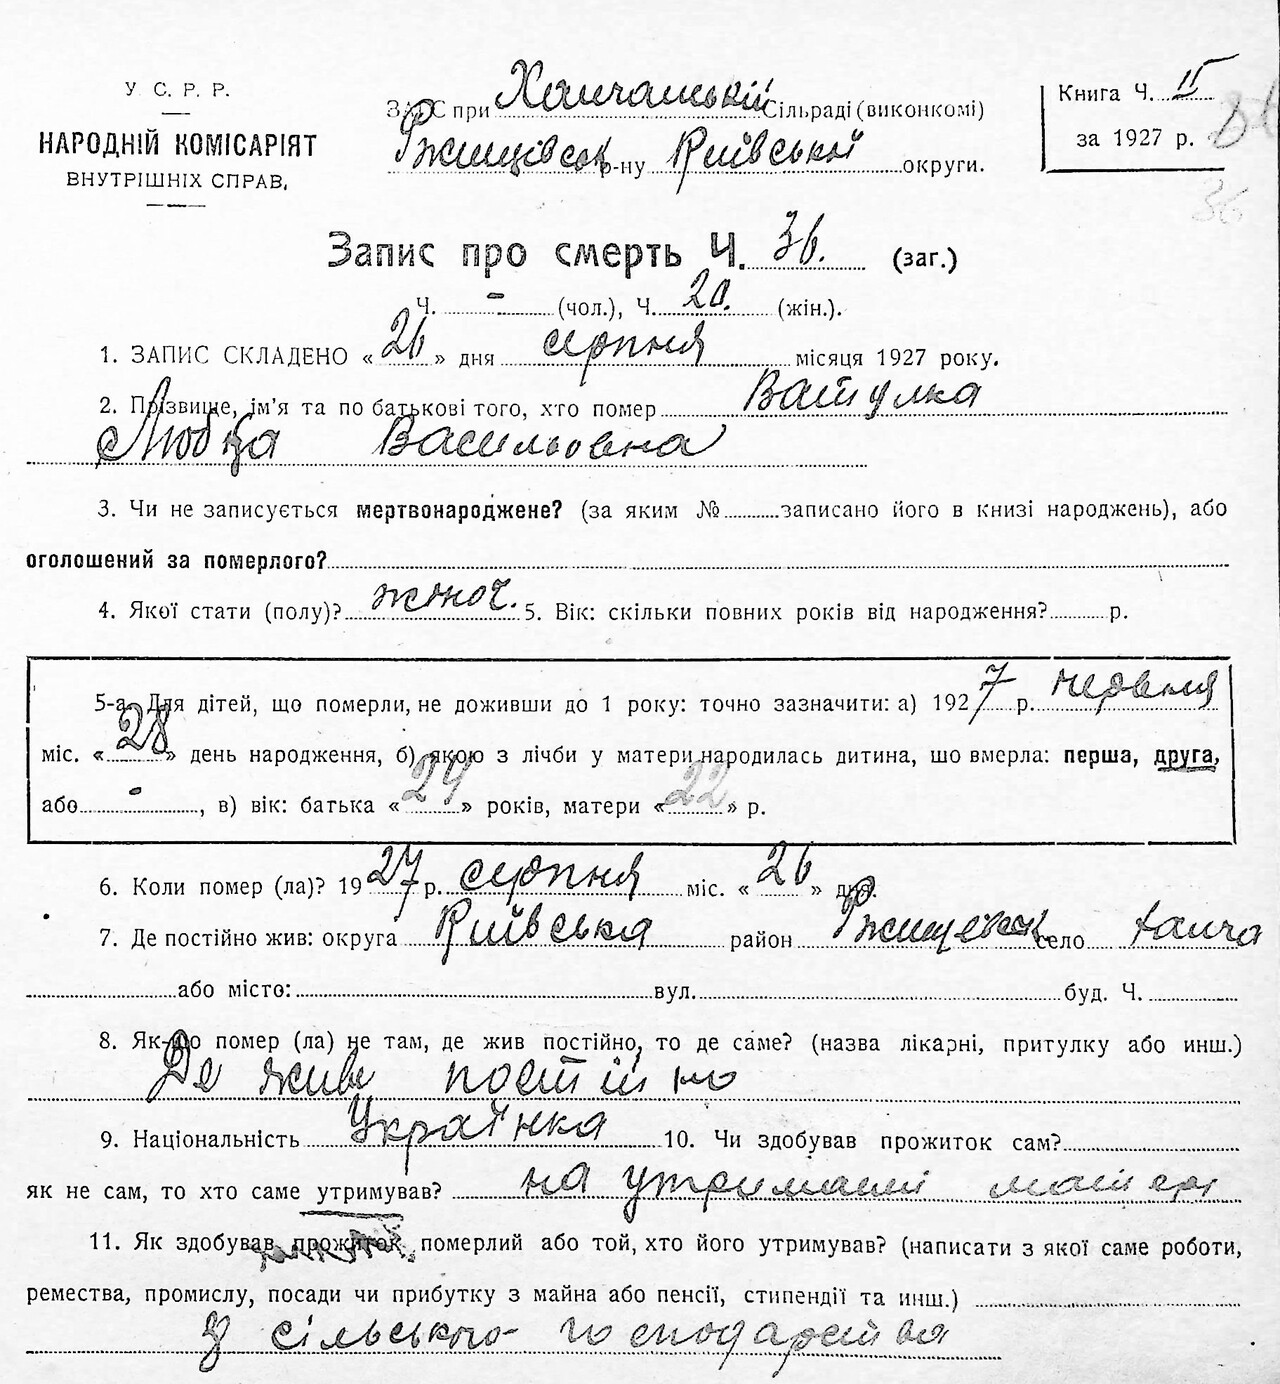 У. С. Р. Р.
НАРОДНІЙ КОМІСАРІЯТ
ВНУТРІШНІХ СПРАВ.
ЗАГС при Ханчанській Сільраді (виконкомі)
Ржищівськ р-ну Київської округи.
Книга Ч. II
за 1927 р.
36
36
Запис про смерть Ч. 36. (заг.)
Ч. - (чол.), Ч. 20. (жін.).
1. ЗАПИС СКЛАДЕНО « 26 » дня серпня місяця 1927 року.
2. Прізвище, ім'я та по батькові того, хто помер Ватулка
Любка Васильовна
3. Чи не записується мертвонароджене? (за яким № записано його в книзі народжень), або
оголошений за померлого?
4. Якої стати (полу)? жіноч. 5. Вік: скільки повних років від народження? р.
5-а. Для дітей, що померли, не доживши до 1 року: точно зазначити: а) 1927 р. червня
міс. « 28 » день народження, б) якою з лічби у матери народилась дитина, що вмерла: перша, друга,
або - , в) вік: батька « 24 » років, матери « 22 » р.
6. Коли помер (ла)? 1927 р. серпня міс. « 26 » дня.
7. Де постійно жив: округа Київська район Ржищівськ село Ханча
або місто: вул. буд. Ч.
8. Як-що помер (ла) не там, де жив постійно, то де саме? (назва лікарні, притулку або инш.)
Де живе постійно
9. Національність Українка 10. Чи здобував прожиток сам?
як не сам, то хто саме утримував? на утриманні матері
11. Як здобував прожиток померлий або той, хто його утримував? (написати з якої саме роботи,
ремества, промислу, посади чи прибутку з майна або пенсії, стипендії та инш.)
З сільського господарства